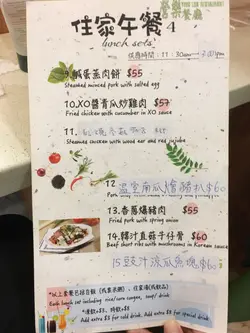 住家午餐 4
lunch sets
供應時間：11:30am-
9.鹹蛋蒸肉餅 $55
Steamed minced pork with salted egg
10.XO醬青瓜炒雞肉 $57
Fried chicken with cucumber in XO sauce
11.
Steamed chicken with wood ear and red jujube
12. 南瓜燴豬扒 $60
13.香蔥爆豬肉 $55
Fried pork with spring onion
14.韓汁直菇牛仔骨 $60
Beef short ribs with mushrooms in Korean sauce
15 豉汁涼瓜魚塊 $60
Each lunch set including rice/corn congee, soup/ drink
*凍飲+$3, 特飲+$3
Add extra $3 for cold drink. Add extra $3 for special drink.